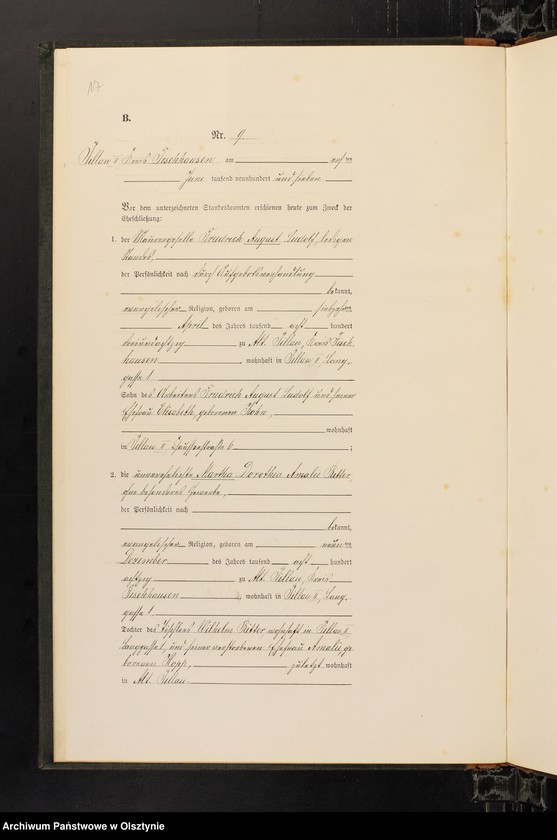 117
B.
Nr. 9
Pillau II Kreis Fischhausen am acht ten
Juni tausend neunhundert und sieben
Vor dem unterzeichneten Standesbeamten erschienen heute zum Zweck der
Eheschließung:
1. der Maurergeselle Friedrich August Ludolf, ledigen
Standes,
der Persönlichkeit nach durch Aufgebotsverhandlung
bekannt,
evangelischer Religion, geboren am
April des Jahres tausend acht hundert
dreiundachtzig zu Alt Pillau, Kreis Fisch-
hausen, wohnhaft in Pillau II, Lang-
gasse 1,
Sohn des Arbeiters Friedrich August Ludolf und seiner
Ehefrau Elisabeth, geborenen Kohn,
wohnhaft
in Pillau II Chausseestraße 6 ;
2. die unverehelichte Martha Dorothea Amalie Ritter,
ohne besonderes Gewerbe,
der Persönlichkeit nach
bekannt,
evangelischer Religion, geboren am neun ten
Dezember des Jahres tausend acht hundert
achtzig zu Alt Pillau, Kreis
Fischhausen, wohnhaft in Pillau II, Lang-
gasse 1,
Tochter des Wilhelm Ritter wohnhaft in Pillau II
Langgasse 1, und seiner verstorbenen Ehefrau Amalie, ge-
borenen Kopp, zuletzt wohnhaft
in Alt Pillau.
Archiwum Państwowe w Olsztynie